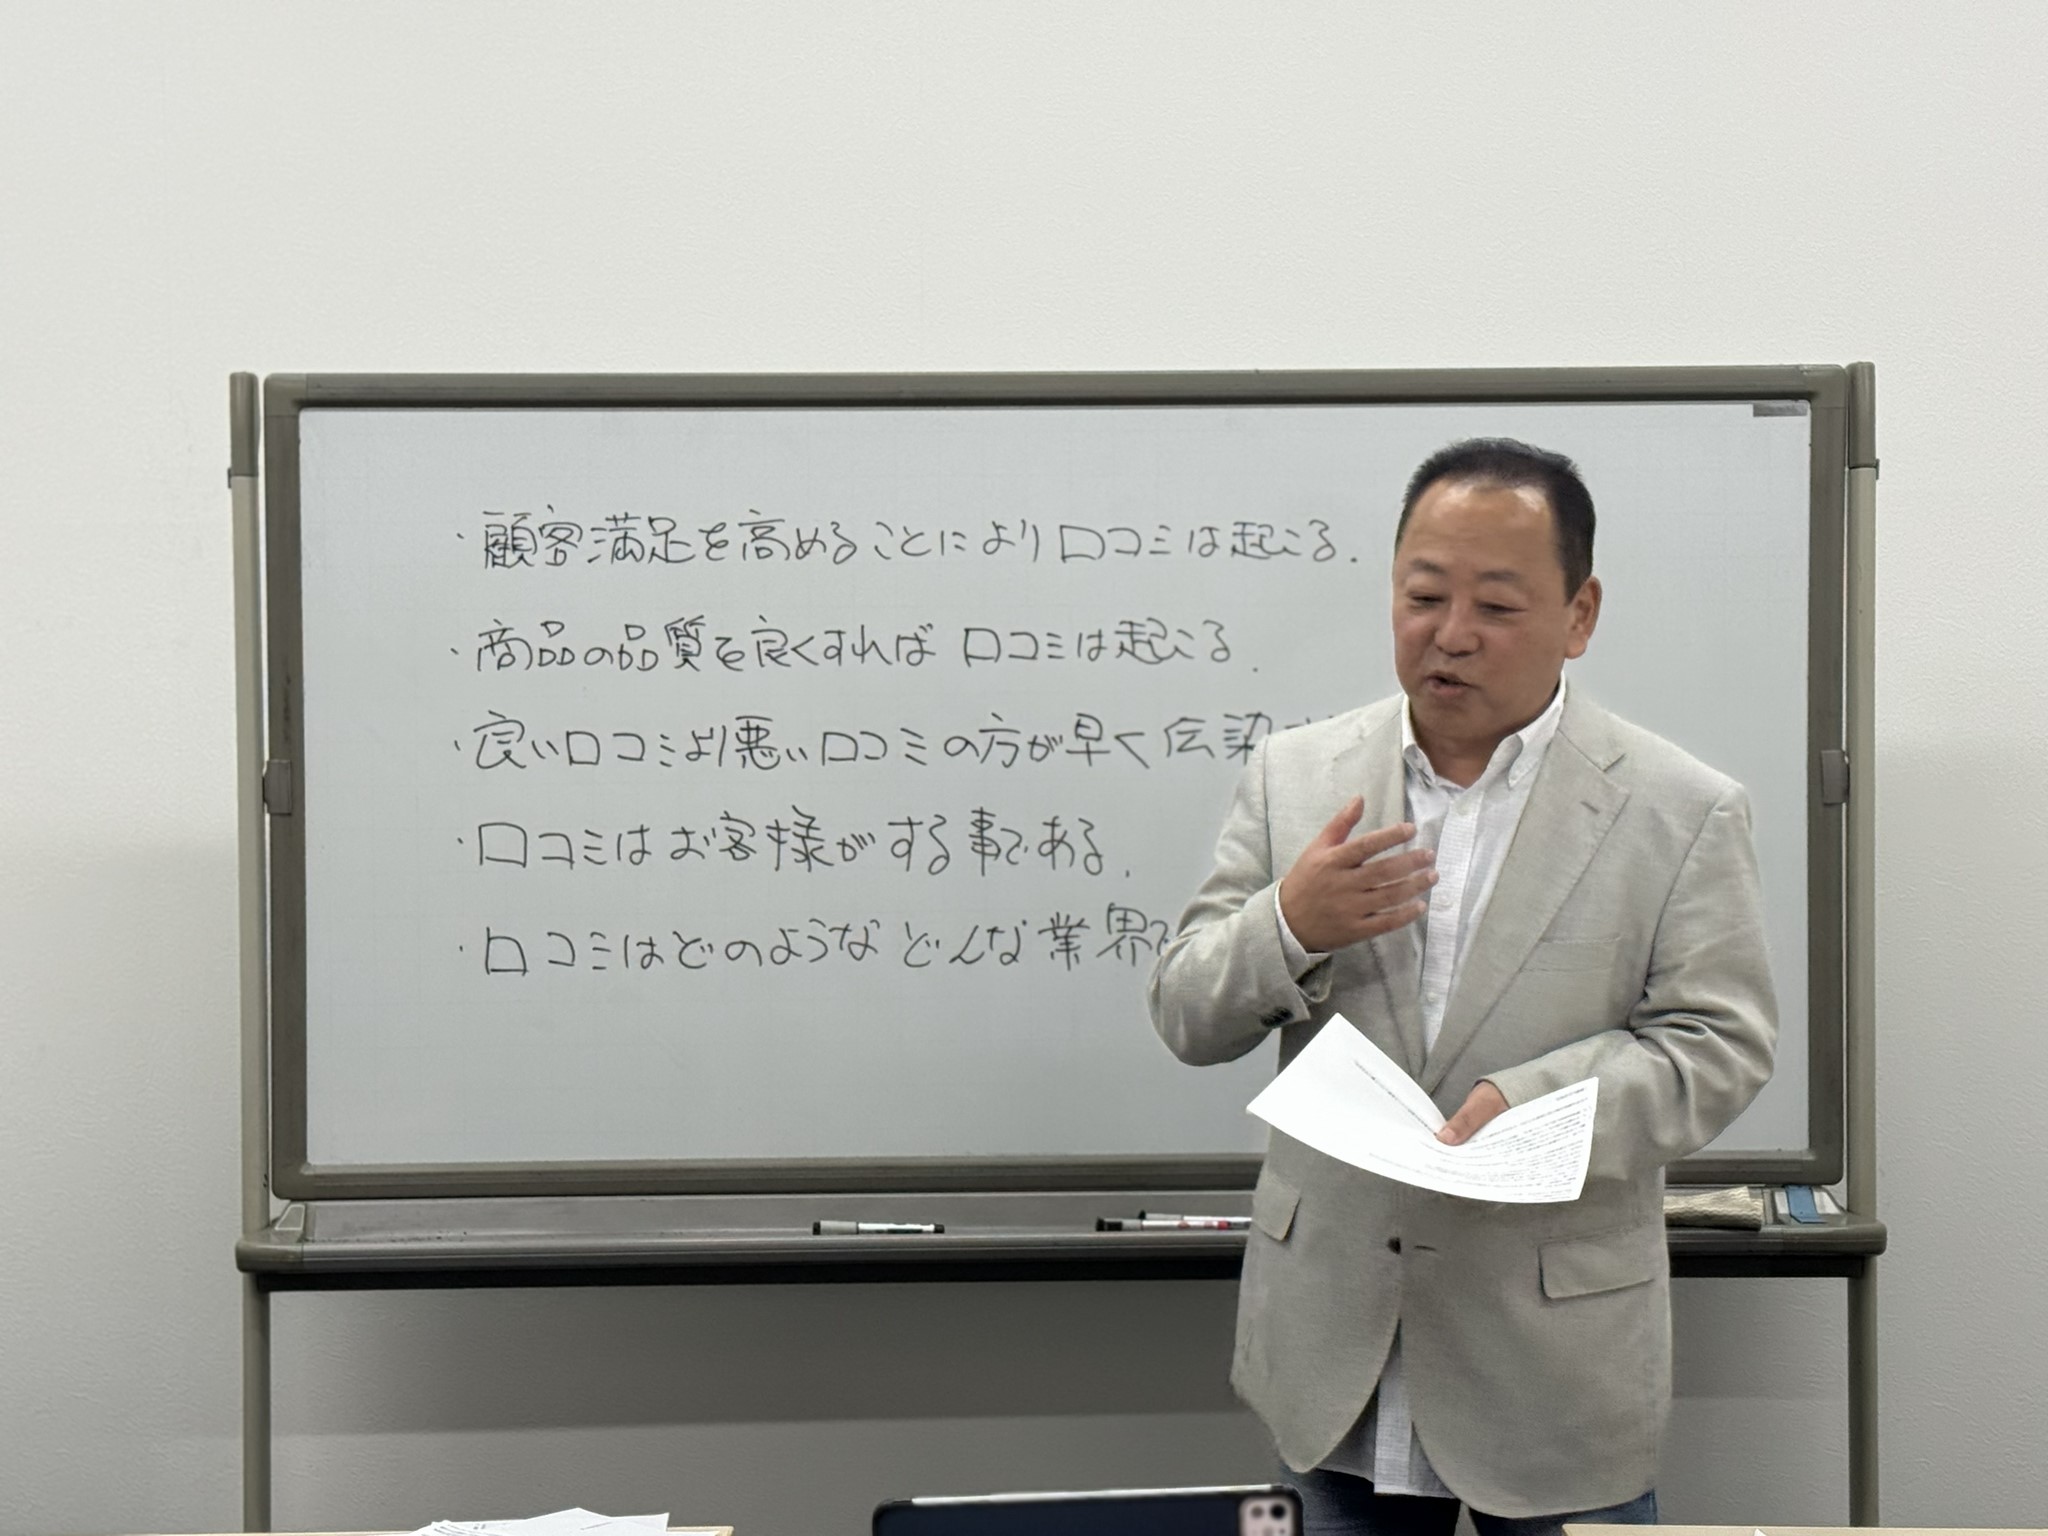 ・顧客満足を高めることにより口コミは起こる.
・商品の品質を良くすれば 口コミは起こる.
・良い口コミより悪い口コミの方が早く伝染
・口コミはお客様がする事である.
・口コミはどのような どんな業界で